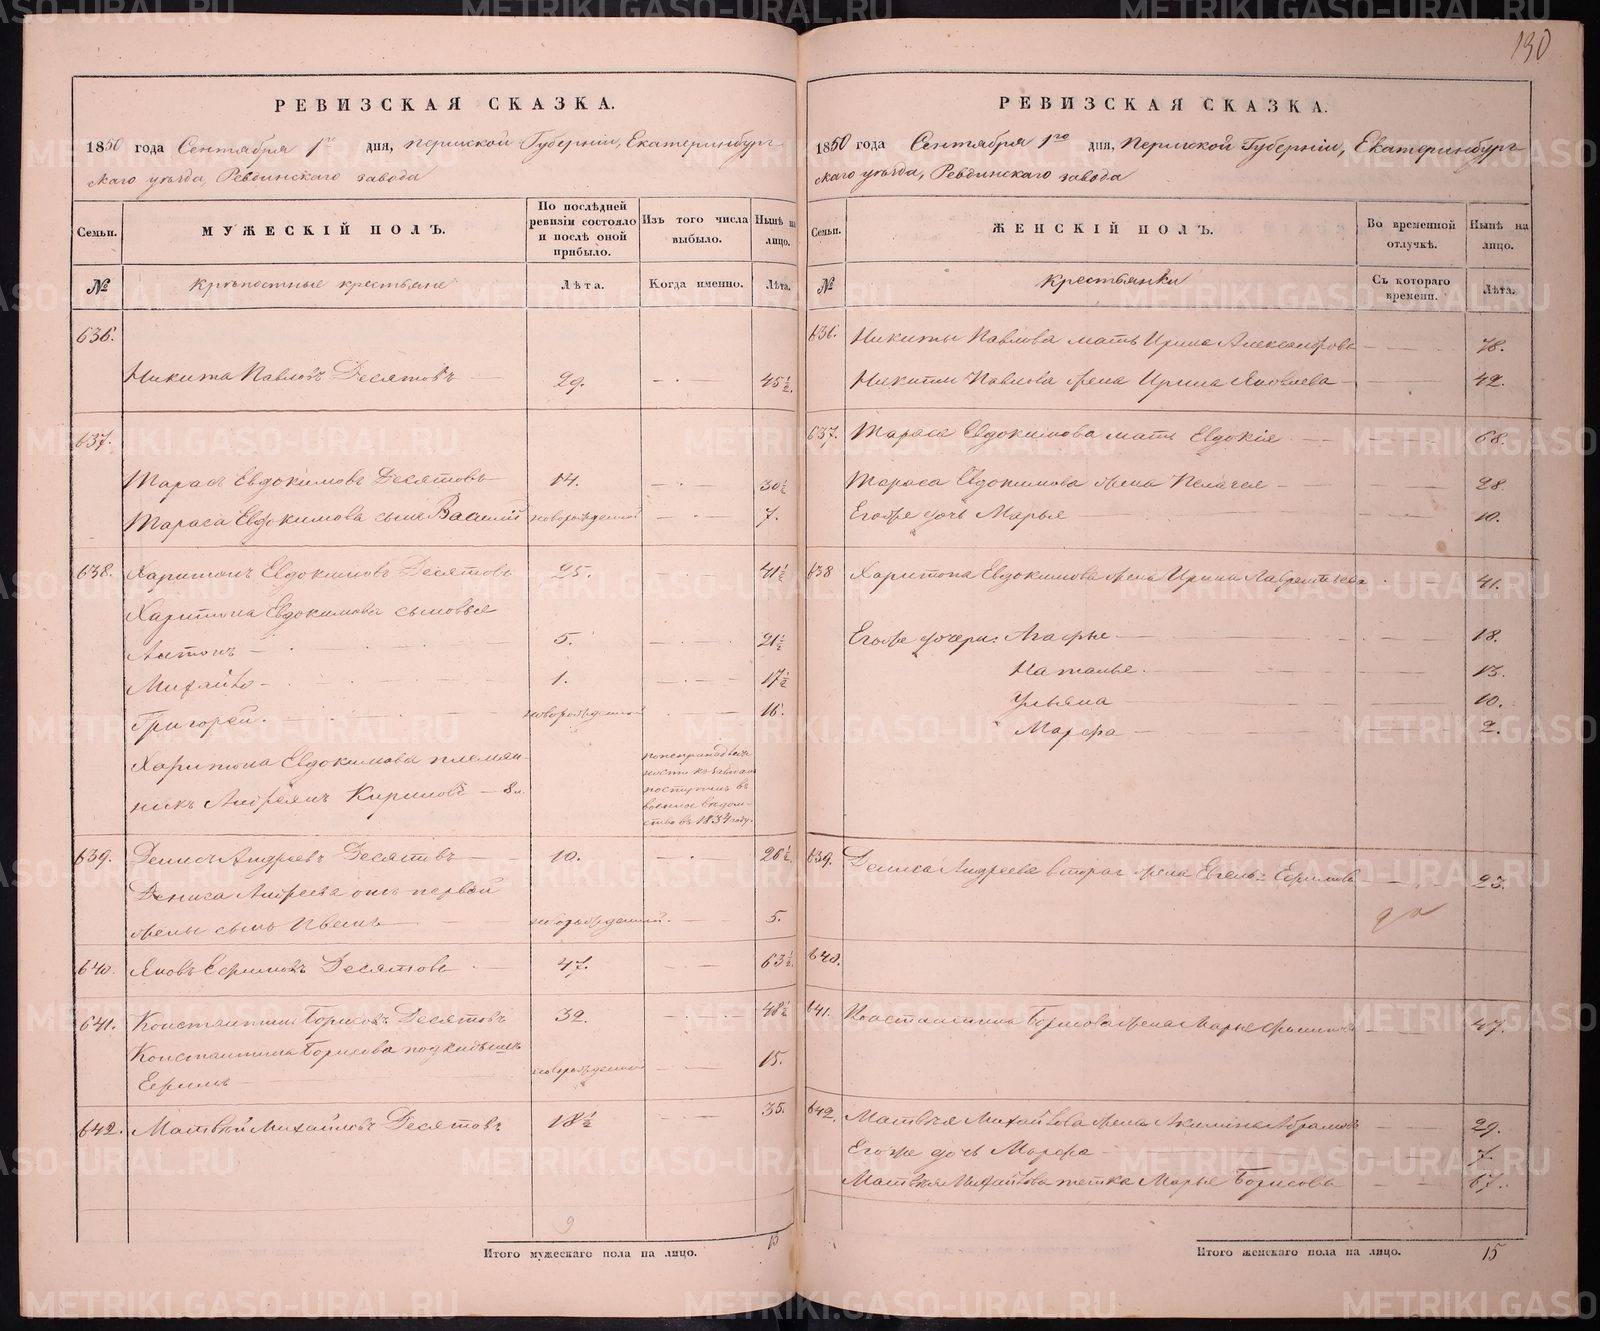 130
РЕВИЗСКАЯ СКАЗКА.
1850 года Сентября 1го дня, Пермской Губерніи, Екатеринбург-
скаго уѣзда, Ревдинскаго завода
Семьи.
МУЖЕСКІЙ ПОЛЪ.
По послѣдней ревизіи состояло и послѣ оной прибыло.
Изъ того числа выбыло.
Нынѣ на лицо.
№
Крѣпостные крестьяне
Лѣта.
Когда именно.
Лѣта.
636.
Никита Павловъ Десятовъ — 29. — 45½
637.
Тарасъ Евдокимовъ Десятовъ 14. — 30½
Тараса Евдокимова сынъ Василій новорожденной — 7.
638. Харитонъ Евдокимовъ Десятовъ 25. — 41½
Харитона Евдокимова сыновья
Антонъ — 5. — 21½
Михайло — 1. — 17½
Григорей — новорожденной — 16.
Харитона Евдокимова племян-
никъ Андреянъ Кириловъ — 8 л.
поступилъ въ
военное вѣдом-
ство въ 1834 году.
639. Денисъ Андреевъ Десятовъ — 10. — 26½
Дениса Андреева отъ первой
жены сынъ — новорожденной — 5.
640. Яковъ Ефимовъ Десятовъ — 47. — 63½
641. Константинъ Борисовъ Десятовъ 32. — 48½
Константина Борисова подкидышъ
Ефимъ — новорожденной — 15.
642. Матвѣй Михайловъ Десятовъ 18½ — 35.
9
Итого мужескаго пола на лицо. 15
РЕВИЗСКАЯ СКАЗКА.
1850 года Сентября 1го дня, Пермской Губерніи, Екатеринбург-
скаго уѣзда, Ревдинскаго завода
Семьи.
ЖЕНСКІЙ ПОЛЪ.
Во временной отлучкѣ.
Нынѣ на лицо.
№
Крестьянки
Съ котораго времени.
Лѣта.
636. Никиты Павлова мать Ирина Александрова — 78.
Никиты Павлова жена Ирина Яковлева — 42.
637. Тараса Евдокимова мать Евдокія — 68.
Тараса Евдокимова жена Пелагея — 28.
Егоже дочь Марья — 10.
638 Харитона Евдокимова жена Ирина Лаврентьева — 41.
Егоже дочери: Агафья — 18.
Наталья — 13.
Ульяна — 10.
Марфа — 2.
639. Дениса Андреева вторая жена Ефимова — 23.
640.
641. Константина Борисова жена Марья — 47.
642. Матвѣя Михайлова жена Акилина Абрамова — 29.
Егоже дочь Марфа — 7.
Матвѣя Михайлова тетка Марья Борисова — 67.
Итого женскаго пола на лицо. 15
METRIKI.GASO-URAL.RU